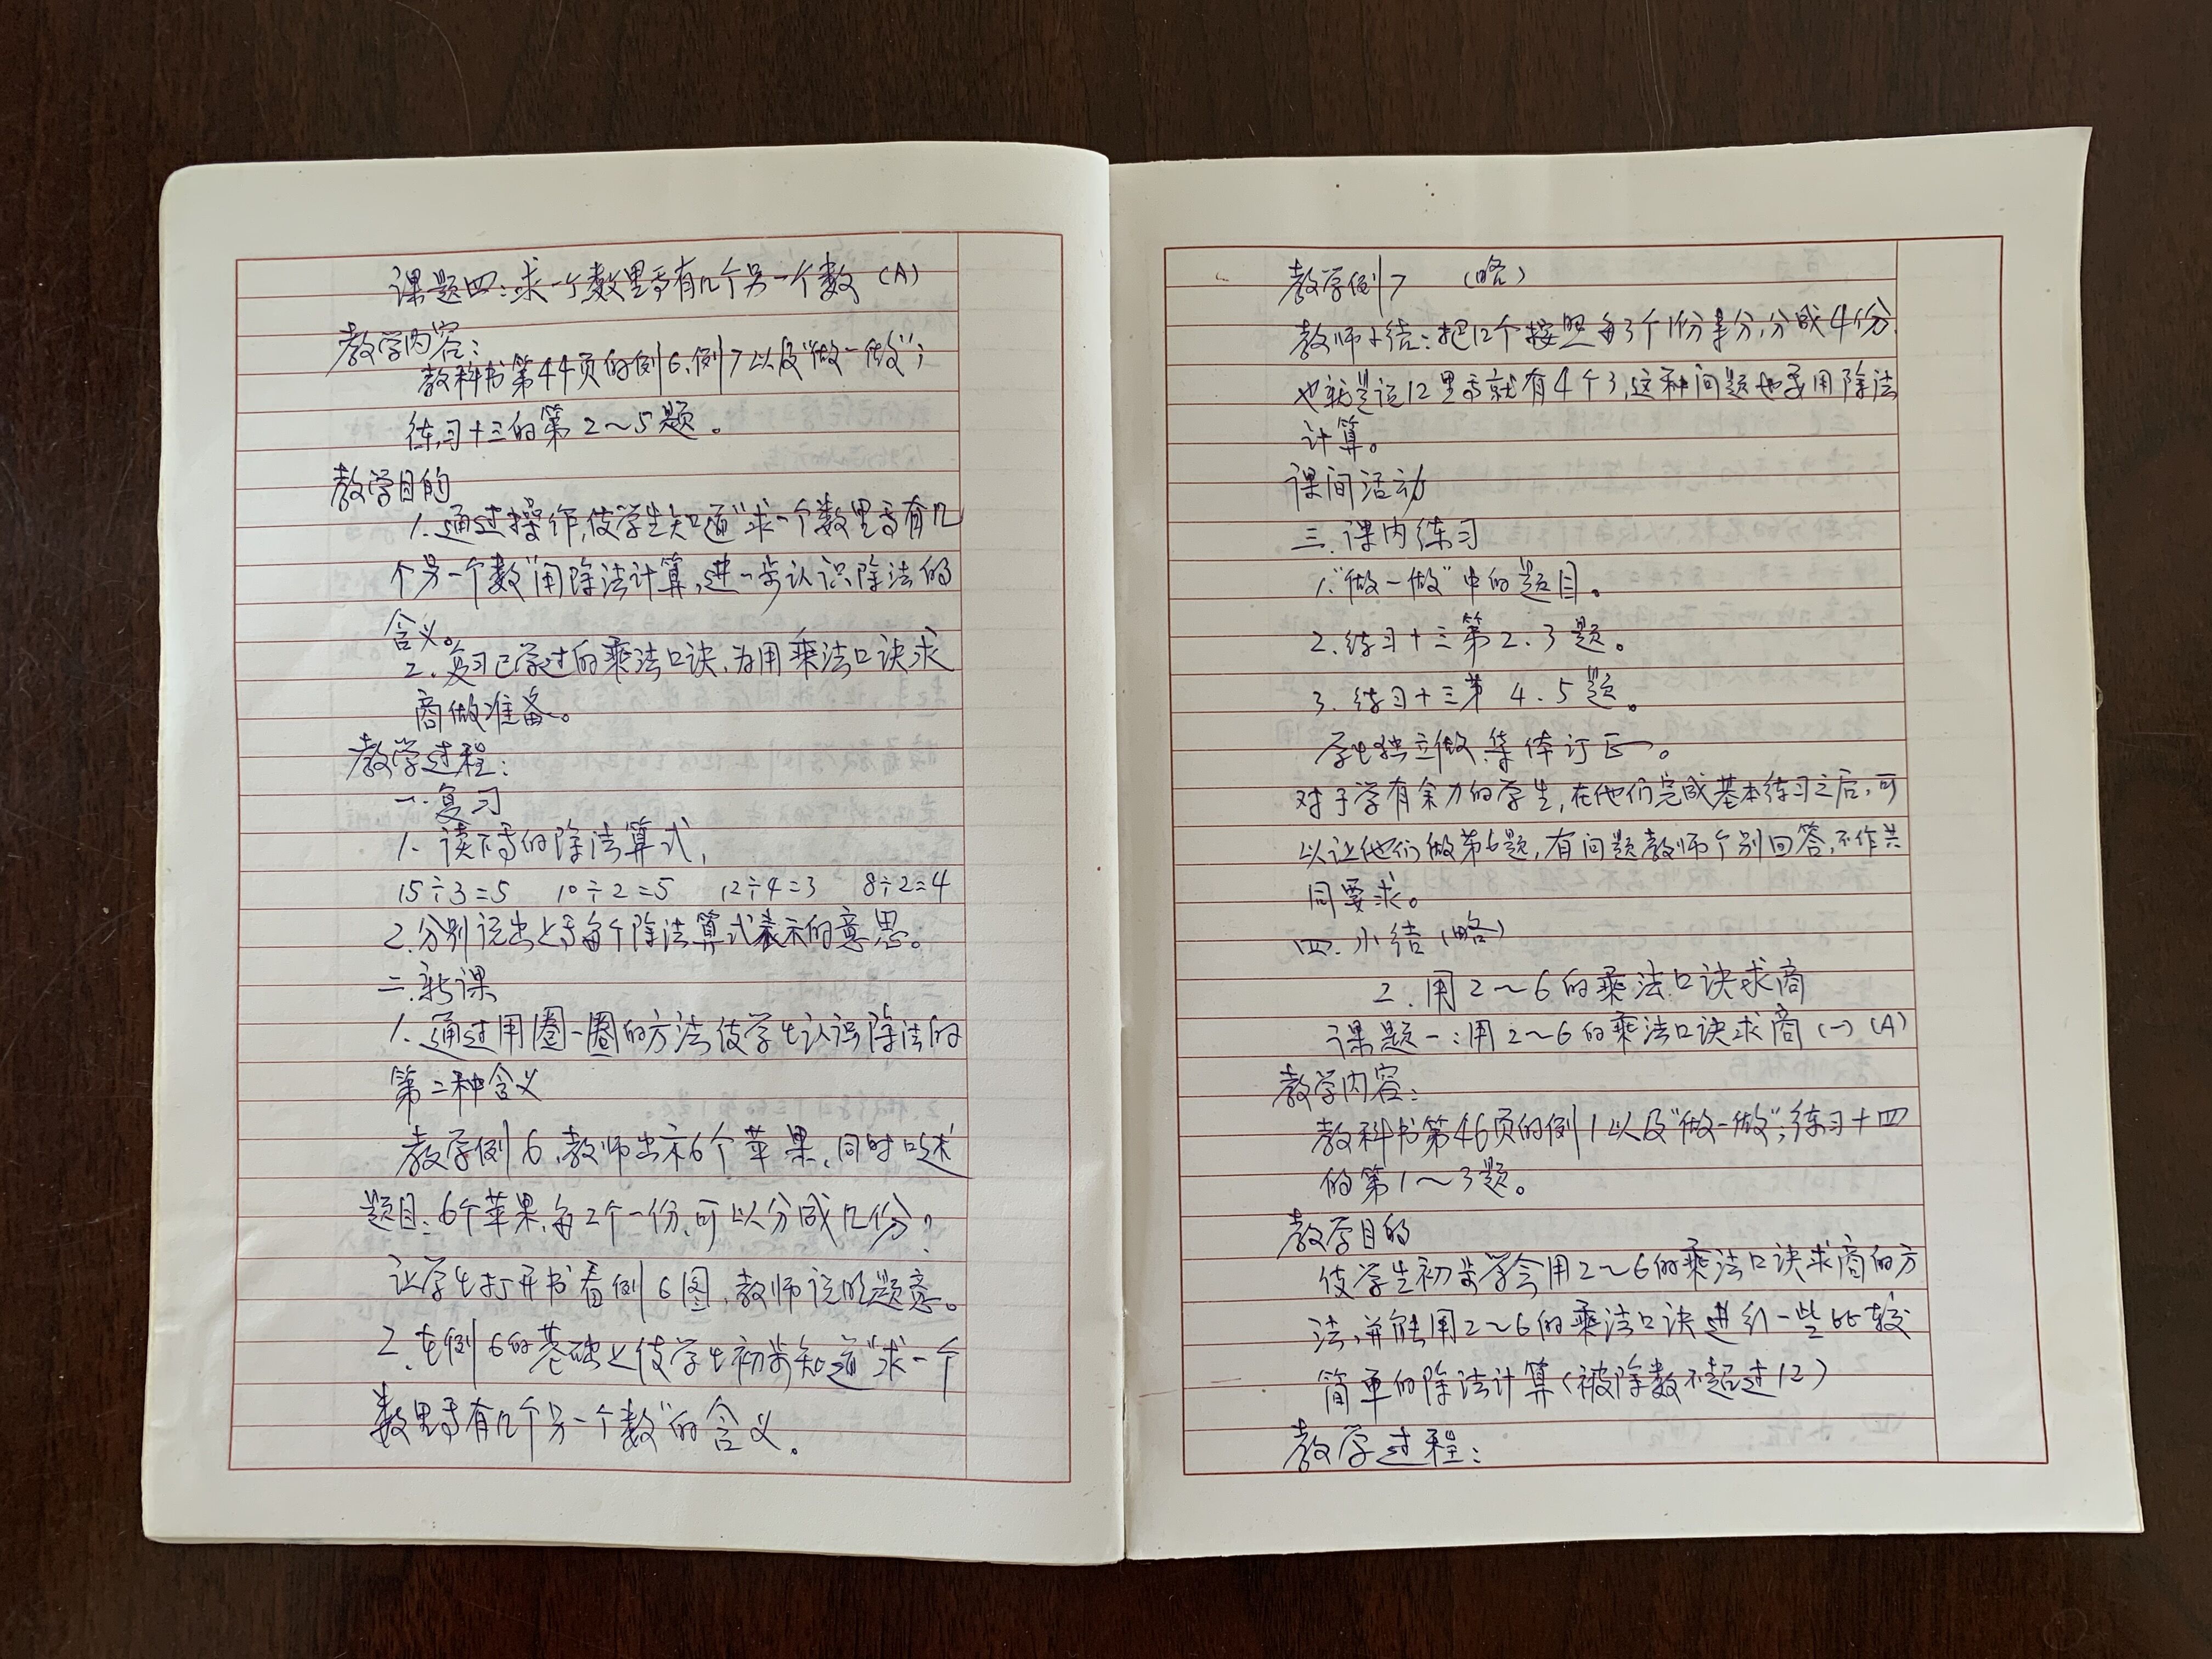 课题四:求一个数里面有几个另一个数(A)
教学内容:
教科书第44页的例6、例7以及“做一做”;
练习十三的第2~5题。
教学目的
1.通过操作,使学生知道“求一个数里面有几
个另一个数”用除法计算,进一步认识除法的
含义。
2.复习已学过的乘法口诀,为用乘法口诀求
商做准备。
教学过程:
一.复习
1.读下面的除法算式,
15÷3=5 10÷2=5 12÷4=3 8÷2=4
2.分别说出上面每个除法算式表示的意思。
二.新课
1.通过用圈一圈的方法使学生认识除法的
第二种含义
教学例6,教师出示6个苹果,同时口述
题目:6个苹果,每2个一份,可以分成几份?
让学生打开书看例6图,教师说明题意。
2.在例6的基础上使学生初步知道“求一个
数里面有几个另一个数”的含义。
教学例7 (略)
教师小结:把12个按照每3个1份来分,分成4份,
也就是说12里面就有4个3,这种问题也要用除法
计算。
课间活动
三.课内练习
1.“做一做”中的题目。
2.练习十三第2.3题。
3.练习十三第4.5题。
学生独立做,集体订正。
对于学有余力的学生,在他们完成基本练习之后,可
以让他们做第6题,有问题教师个别回答,不作共
同要求。
四.小结(略)
2.用2~6的乘法口诀求商
课题一:用2~6的乘法口诀求商(一)(A)
教学内容:
教科书第46页的例1以及“做一做”;练习十四
的第1~3题。
教学目的
使学生初步学会用2~6的乘法口诀求商的方
法,并能用2~6的乘法口诀进行一些比较
简单的除法计算(被除数不超过12)
教学过程: